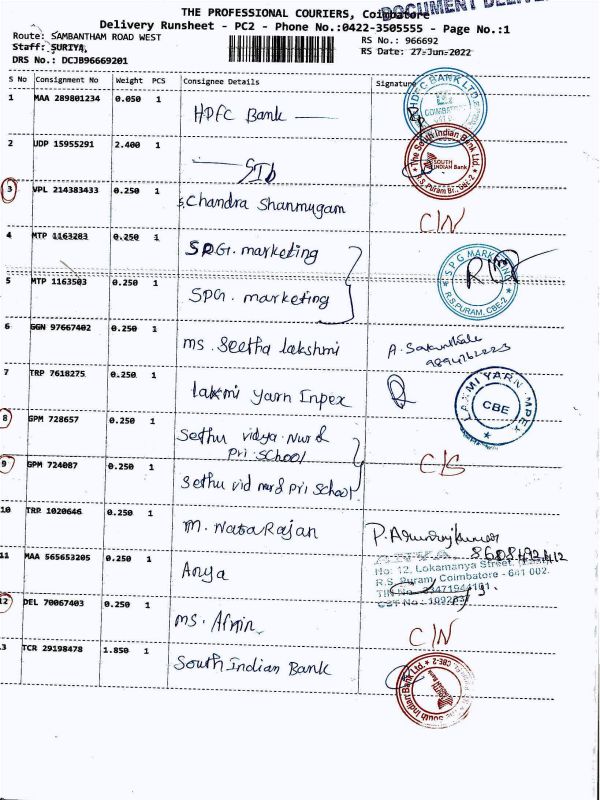 THE PROFESSIONAL COURIERS, Coimbatore
DOCUMENT
Delivery Runsheet - PC2 - Phone No.:0422-3505555 - Page No.:1
Route: SAMBANTHAM ROAD WEST
RS No.: 966692
Staff: SURIYA,
RS Date: 27-Jun-2022
DRS No.: DCJB96669201
S No Consignment No Weight PCS Consignee Details Signature
1 MAA 289801234 0.050 1 HDFC Bank
HDFC BANK LTD
2 UDP 15955291 2.400 1 SIb
The South Indian Bank Ltd.
SOUTH INDIAN Bank
R.S. Puram Br., Cbe-2
3 VPL 214383433 0.250 1 Chandra Shanmugam C/N
4 MTP 1163283 0.250 1 SPG. marketing
SPG MARKETING
R.S.PURAM, CBE-2
5 MTP 1163503 0.250 1 SPG. marketing
6 GGN 97667402 0.250 1 ms. Seetha lakshmi
7 TRP 7618275 0.250 1 lakmi Yarn Inpex
LAXMI YARN IMPEX
CBE
8 GPM 728657 0.250 1 Sethu vidya Nur &
Pri School
C/S
9 GPM 724087 0.250 1 Sethu vid nur & pri School
10 TRP 1020646 0.250 1 M. NataRajan
11 MAA 565653205 0.250 1 Anya
No: 12, Lokamanya Street,
R.S. Puram, Coimbatore - 641 002.
12 DEL 70067403 0.250 1 ms.
C/N
13 TCR 29198478 1.850 1 South Indian Bank
South Indian Bank Ltd. CBE-2